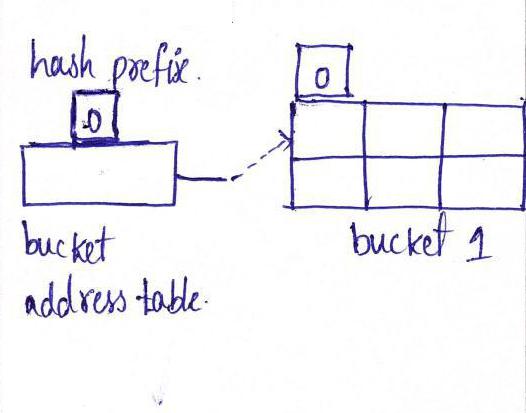 hash prefix.
0
0
bucket
address table.
bucket 1